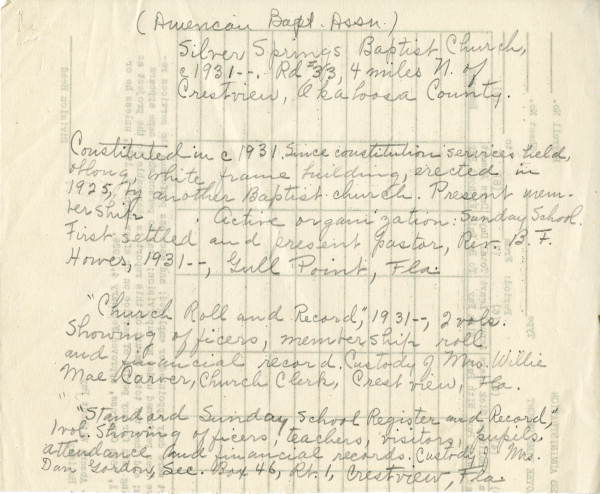 (American Bapt. Assn.)
Silver Springs Baptist Church,
c 1931--. Rd #3, 4 miles N. of
Crestview, Okaloosa County.
Constituted in c 1931. Since constitution services held,
oblong, white frame building, erected in
1925, by another Baptist church. Present mem-
bership . Active organization: Sunday School.
First settled and present pastor, Rev. B. F.
Howes, 1931--, Gull Point, Fla.
"Church Roll and Record," 1931--, 2 vols.
Showing officers, membership roll
and financial record. Custody of Mrs. Willie
Mae Carver, Church Clerk, Crestview, Fla.
"Standard Sunday School Register and Record,"
1 vol. Showing officers, teachers, visitors, pupils,
attendance and financial records. Custody of Mrs.
Dan Gordon, Sec. Box 46, Rt. 1, Crestview, Fla.